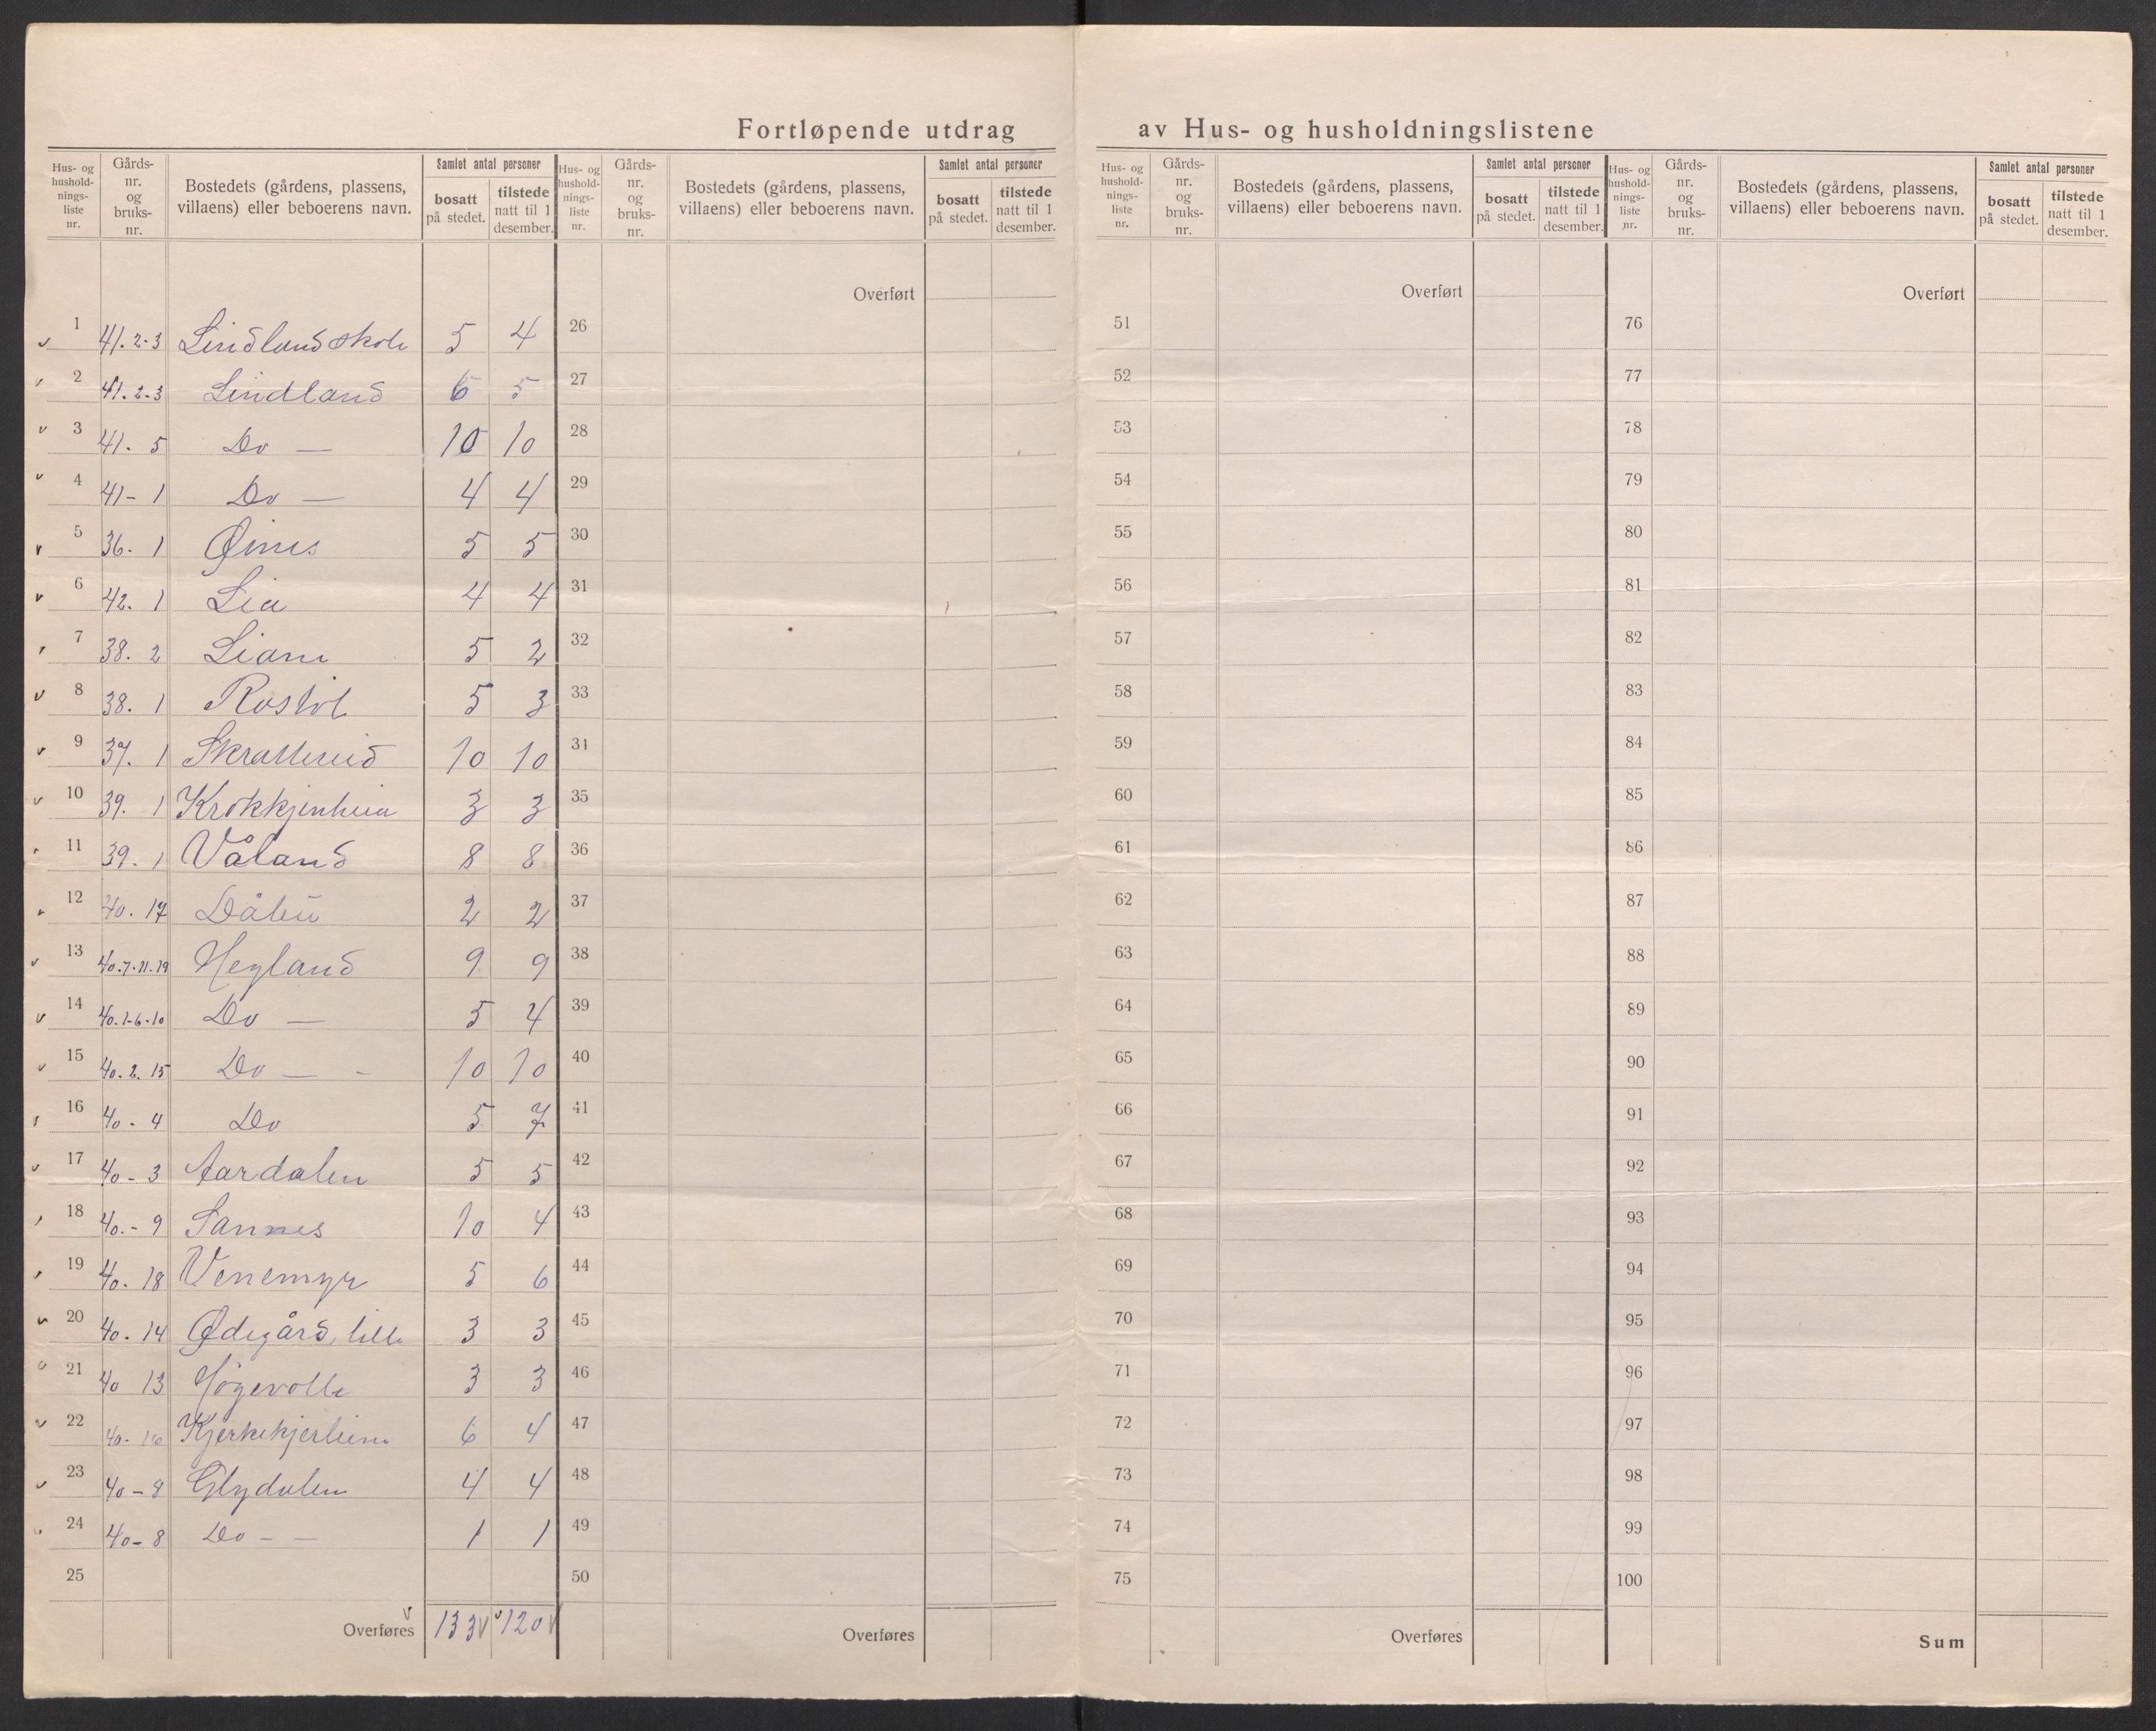 Fortløpende utdrag av Hus- og husholdningslistene
Hus- og hushold-nings-liste nr. Gårds-nr. og bruks-nr. Bostedets (gårdens, plassens, villaens) eller beboerens navn. Samlet antal personer bosatt på stedet. tilstede natt til 1 desember.
Hus- og hushold-nings-liste nr. Gårds-nr. og bruks-nr. Bostedets (gårdens, plassens, villaens) eller beboerens navn. Samlet antal personer bosatt på stedet. tilstede natt til 1 desember.
Hus- og hushold-nings-liste nr. Gårds-nr. og bruks-nr. Bostedets (gårdens, plassens, villaens) eller beboerens navn. Samlet antal personer bosatt på stedet. tilstede natt til 1 desember.
Hus- og hushold-nings-liste nr. Gårds-nr. og bruks-nr. Bostedets (gårdens, plassens, villaens) eller beboerens navn. Samlet antal personer bosatt på stedet. tilstede natt til 1 desember.
Overført Overført Overført
1 41. 2-3 Lindland skole 5 4 26 51 76
2 41. 2-3 Lindland 6 5 27 52 77
3 41. 5 Do — 10 10 28 53 78
4 41-1 Do — 4 4 29 54 79
5 36. 1 Øines 5 5 30 55 80
6 42. 1 Lia 4 4 31 56 81
7 38. 2 Liane 5 2 32 57 82
8 38. 1 Rostøl 5 3 33 58 83
9 37. 1 Skratlereid 10 10 34 59 84
10 39. 1 Krokkjenheia 3 3 35 60 85
11 39. 1 Våland 8 8 36 61 86
12 40. 17 Dålen 2 2 37 62 87
13 40.7-11.19 Hegland 9 9 38 63 88
14 40.1-6-10 Do — 5 4 39 64 89
15 40. 2. 15 Do — - 10 10 40 65 90
16 40 - 4 Do 5 7 41 66 91
17 40 - 3 Aardalen 5 5 42 67 92
18 40.- 9 Sannes 10 4 43 68 93
19 40. 18 Venemyr 5 6 44 69 94
20 40. 14 Ødegård, lille 3 3 45 70 95
21 40 13 Høgevolle 3 3 46 71 96
22 40- 16 Kjerkekjerheim 6 4 47 72 97
23 40 - 8 Glydalen 4 4 48 73 98
24 40- 8 Do - - 1 1 49 74 99
25 50 75 100
Overføres 133 120 Overføres Overføres Sum